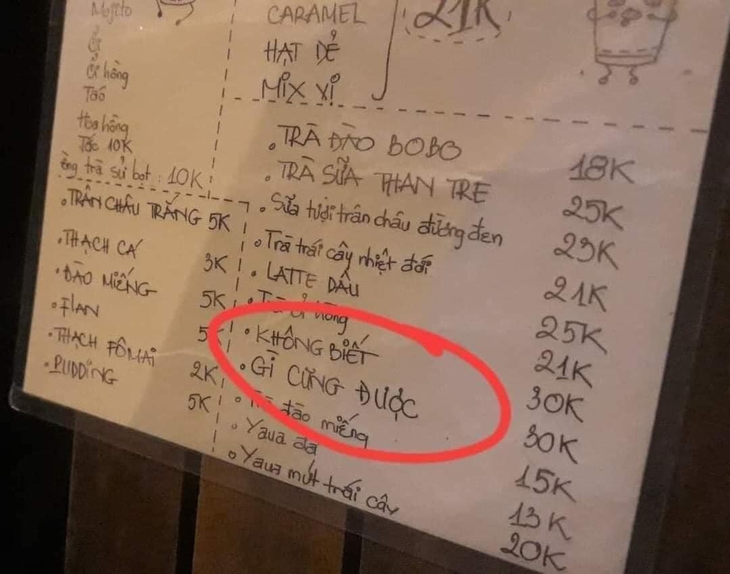 Mojito
Ổi
Ổi hồng
Táo
Hoa hồng
Tốc 10K
trà sủi bọt : 10K
CARAMEL
HẠT DẺ
MIX VỊ
21K
• TRÂN CHÂU TRẮNG 5K
• THẠCH CÁ 3K
• ĐÀO MIẾNG 5K
• FLAN 5K
• THẠCH FÔMAI 2K
• PUDDING 5K
• TRÀ ĐÀO BOBO 18K
• TRÀ SỮA THAN TRE 25K
• Sữa tươi trân châu đường đen 23K
• Trà trái cây nhiệt đới 21K
• LATTE DÂU 25K
• Trà ổi hồng 21K
• KHÔNG BIẾT 30K
• GÌ CŨNG ĐƯỢC 30K
• Trà đào miếng 15K
• Yaua đá 13K
• Yaua mứt trái cây 20K